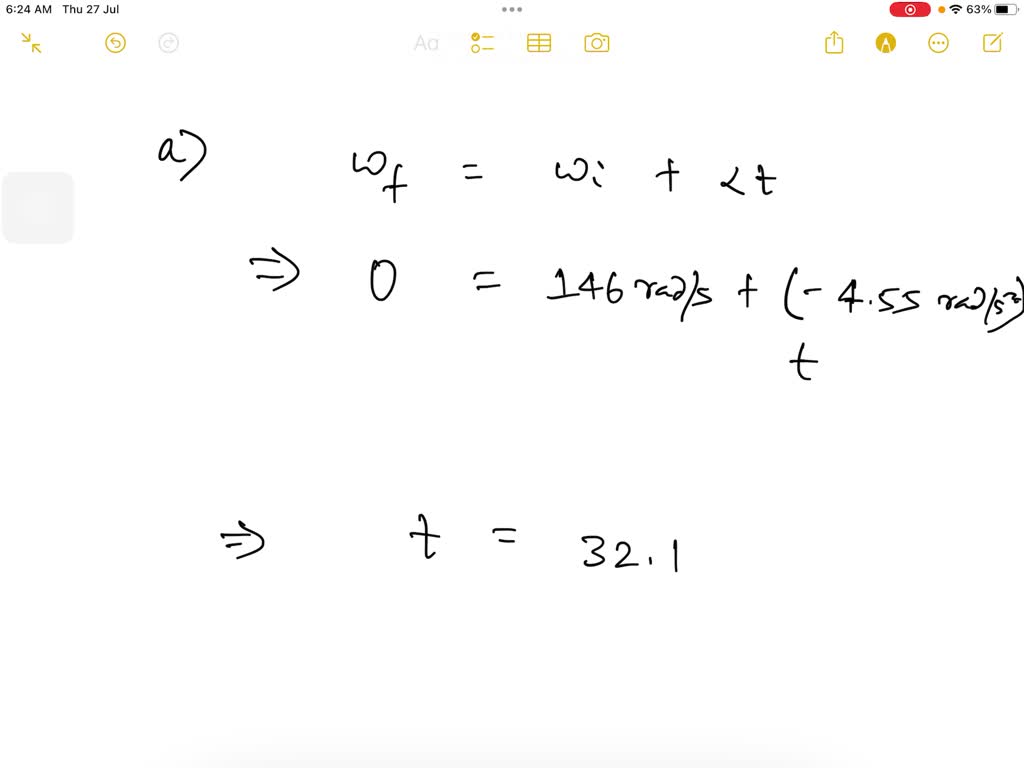 6:24 AM Thu 27 Jul 63%
Aa
a) ωf = ωi + αt
⇒ 0 = 146 rad/s + (- 4.55 rad/s²)
t
⇒ t = 32.1